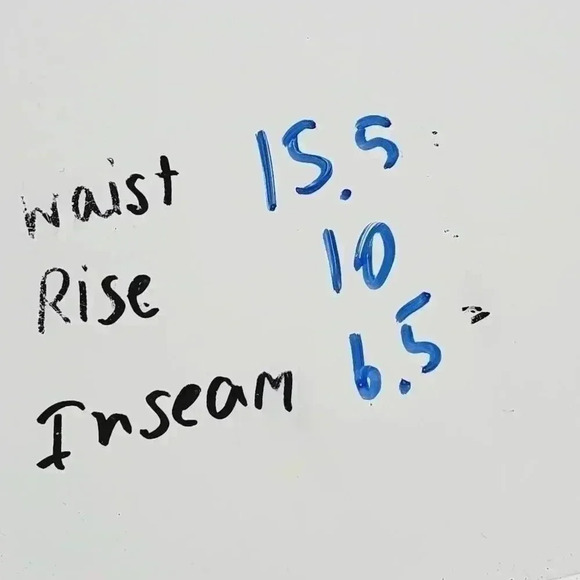 waist 15.5
Rise 10
Inseam 6.5